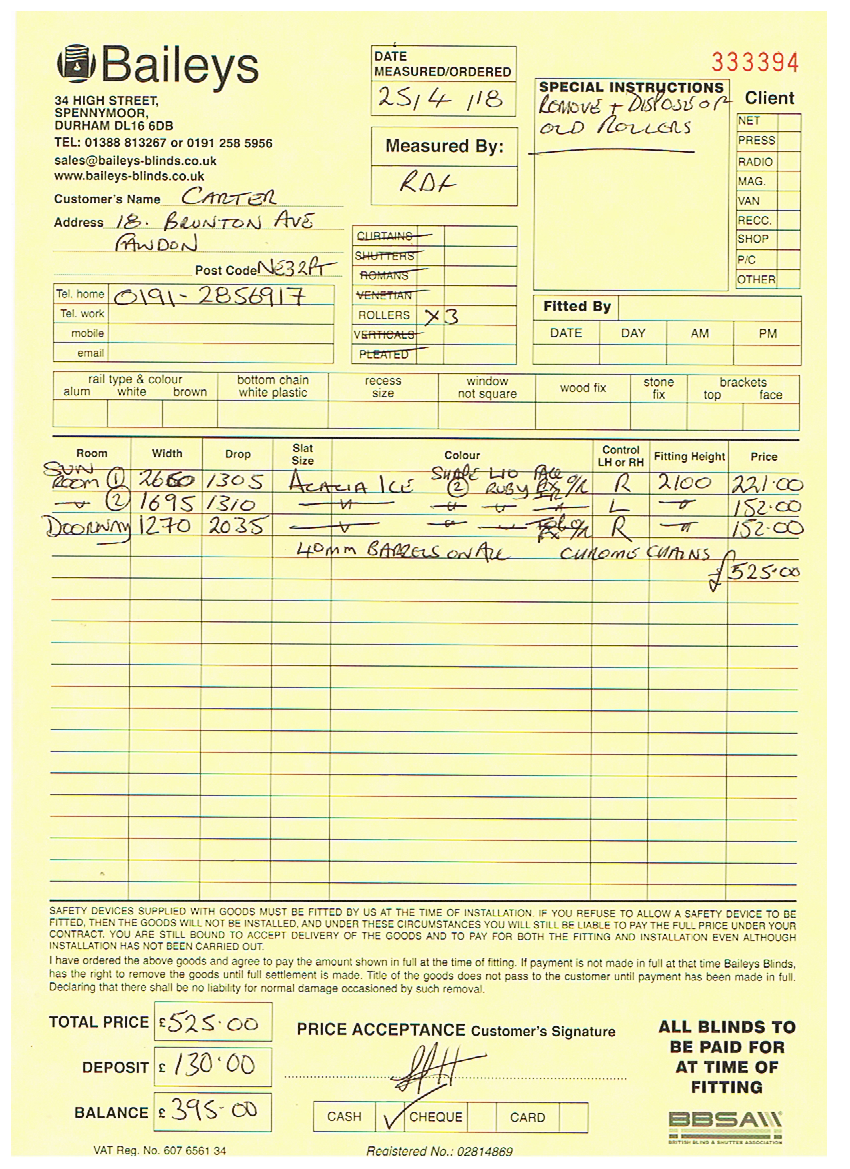 Baileys
34 HIGH STREET,
SPENNYMOOR,
DURHAM DL16 6DB
TEL: 01388 813267 or 0191 258 5956
sales@baileys-blinds.co.uk
www.baileys-blinds.co.uk
DATE
MEASURED/ORDERED
25/4/18
Measured By:
333394
SPECIAL INSTRUCTIONS
REMOVE + DISPOSE OF
OLD ROLLERS
Client
NET
PRESS
RADIO
MAG.
VAN
RECC.
SHOP
P/C
OTHER
Customer's Name CARTER
Address 18. BRUNTON AVE
FAWDON
Post Code NE32PT
Tel. home 0191-2856917
Tel. work
mobile
email
CURTAINS
SHUTTERS
ROMANS
VENETIAN
ROLLERS X3
VERTICALS
PLEATED
Fitted By
DATE DAY AM PM
rail type & colour
alum white brown
bottom chain
white plastic
recess
size
window
not square
wood fix
stone
fix
brackets
top face
Room Width Drop Slat Size Colour Control LH or RH Fitting Height Price
SUN ROOM 1 1305 ACACIA ICE SHAPE 2 RUBY R 2100 221.00
2 1695 1310 L 152.00
DOORWAY 1270 2035 R 152.00
40mm BARRELS ON ALL CHROME CHAINS
£525.00
SAFETY DEVICES SUPPLIED WITH GOODS MUST BE FITTED BY US AT THE TIME OF INSTALLATION. IF YOU REFUSE TO ALLOW A SAFETY DEVICE TO BE
FITTED, THEN THE GOODS WILL NOT BE INSTALLED, AND UNDER THESE CIRCUMSTANCES YOU WILL STILL BE LIABLE TO PAY THE FULL PRICE UNDER YOUR
CONTRACT. YOU ARE STILL BOUND TO ACCEPT DELIVERY OF THE GOODS AND TO PAY FOR BOTH THE FITTING AND INSTALLATION EVEN ALTHOUGH
INSTALLATION HAS NOT BEEN CARRIED OUT.
I have ordered the above goods and agree to pay the amount shown in full at the time of fitting. If payment is not made in full at that time Baileys Blinds,
has the right to remove the goods until full settlement is made. Title of the goods does not pass to the customer until payment has been made in full.
Declaring that there shall be no liability for normal damage occasioned by such removal.
TOTAL PRICE £525.00
DEPOSIT £130.00
BALANCE £395-00
PRICE ACCEPTANCE Customer's Signature
CASH ✓ CHEQUE CARD
ALL BLINDS TO
BE PAID FOR
AT TIME OF
FITTING
BBSA
BRITISH BLIND & SHUTTER ASSOCIATION
VAT Reg. No. 607 6561 34
Registered No.: 02814869